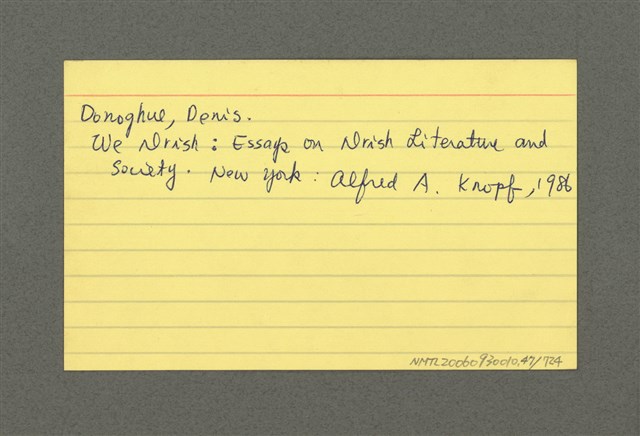 Donoghue, Denis.
We Irish: Essays on Irish Literature and
Society. New York: Alfred A. Knopf, 1986
NMTL20060930010.47/724